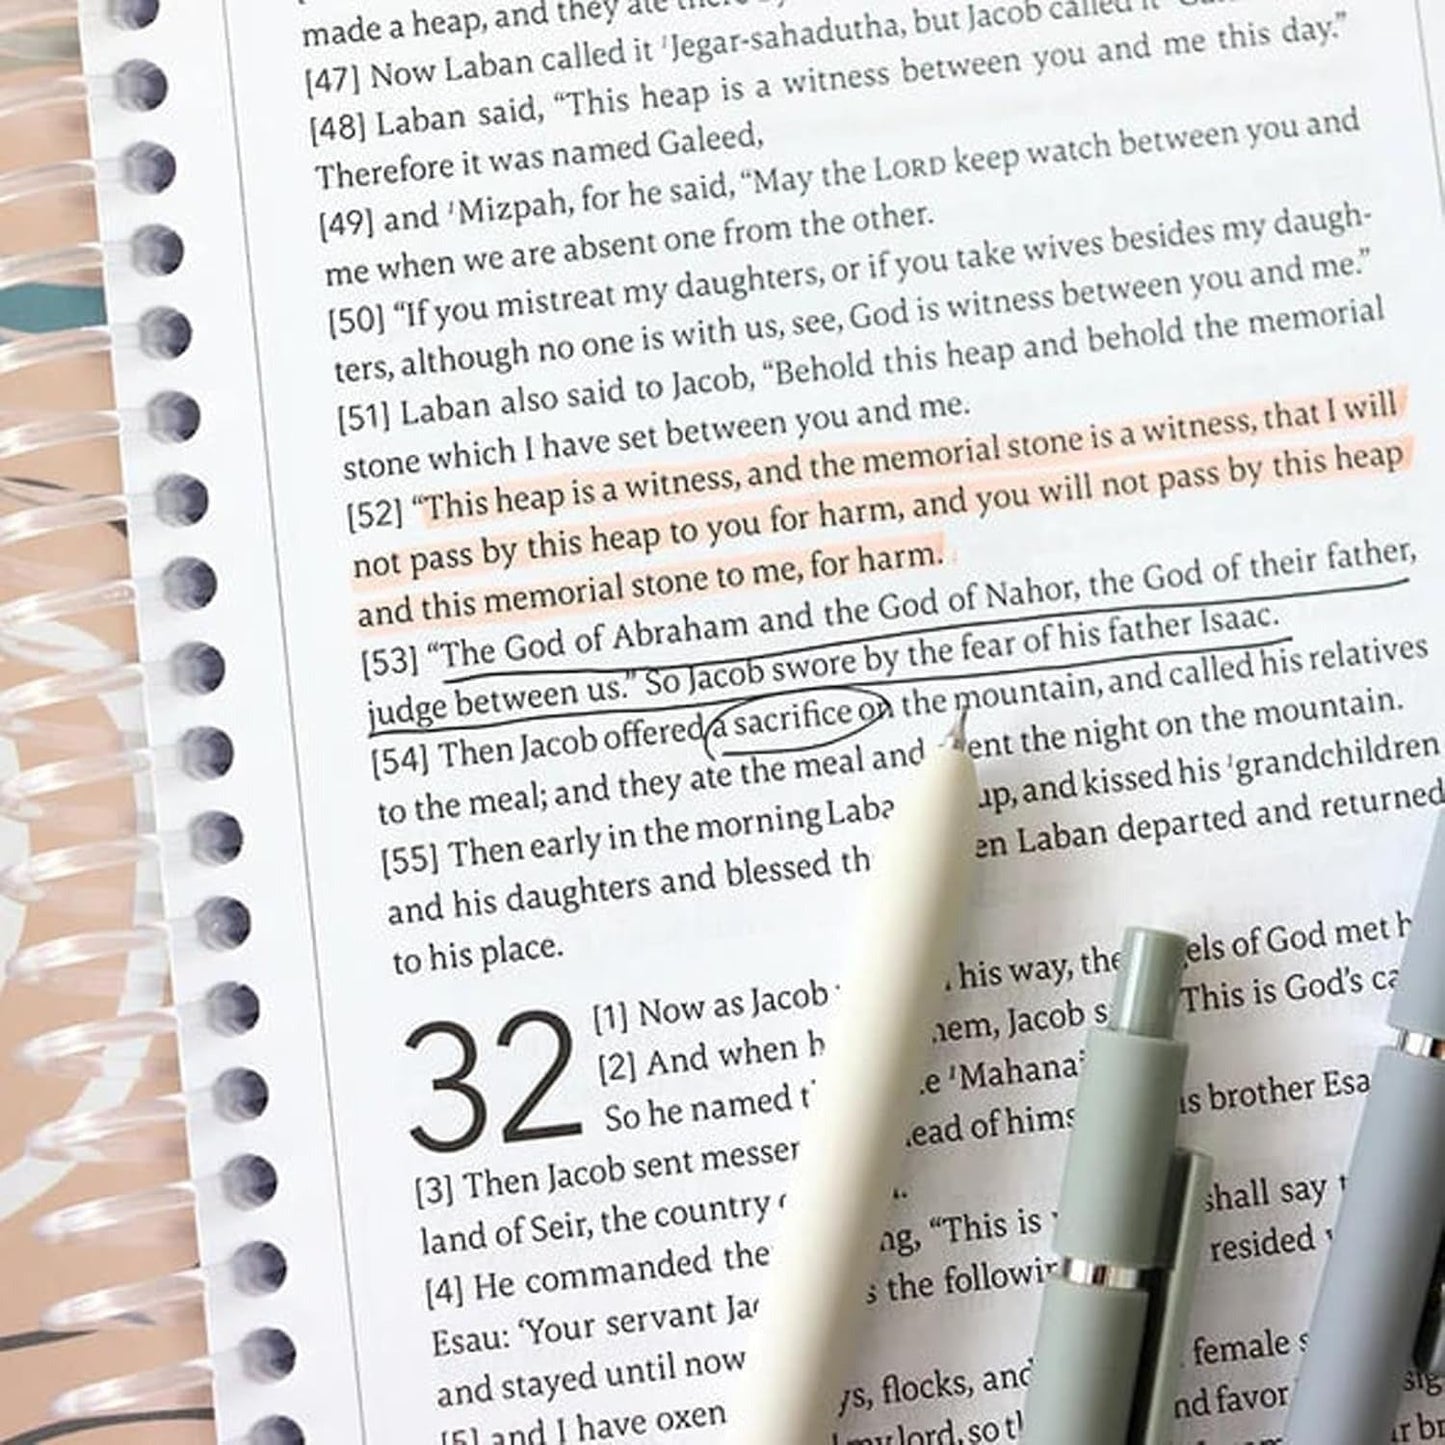 made a heap, and they ate
[47] Now Laban called it 'Jegar-sahadutha, but Jacob called it
[48] Laban said, “This heap is a witness between you and me this day.”
Therefore it was named Galeed,
[49] and 'Mizpah, for he said, “May the LORD keep watch between you and
me when we are absent one from the other.
[50] “If you mistreat my daughters, or if you take wives besides my daugh-
ters, although no one is with us, see, God is witness between you and me.”
[51] Laban also said to Jacob, “Behold this heap and behold the memorial
stone which I have set between you and me.
[52] “This heap is a witness, and the memorial stone is a witness, that I will
not pass by this heap to you for harm, and you will not pass by this heap
and this memorial stone to me, for harm.
[53] “The God of Abraham and the God of Nahor, the God of their father,
judge between us.” So Jacob swore by the fear of his father Isaac.
[54] Then Jacob offered a sacrifice on the mountain, and called his relatives
to the meal; and they ate the meal and ent the night on the mountain.
[55] Then early in the morning Laba up, and kissed his 'grandchildren
and his daughters and blessed th en Laban departed and returned
to his place.
32
[1] Now as Jacob his way, the els of God met h
[2] And when h hem, Jacob s This is God's ca
So he named t e 'Mahana
[3] Then Jacob sent messen ead of hims is brother Esa
land of Seir, the country
[4] He commanded the ng, “This is shall say
Esau: ‘Your servant Jac s the followin resided
and stayed until now
[5] and I have oxen ys, flocks, and female s
my lord, so th nd favor